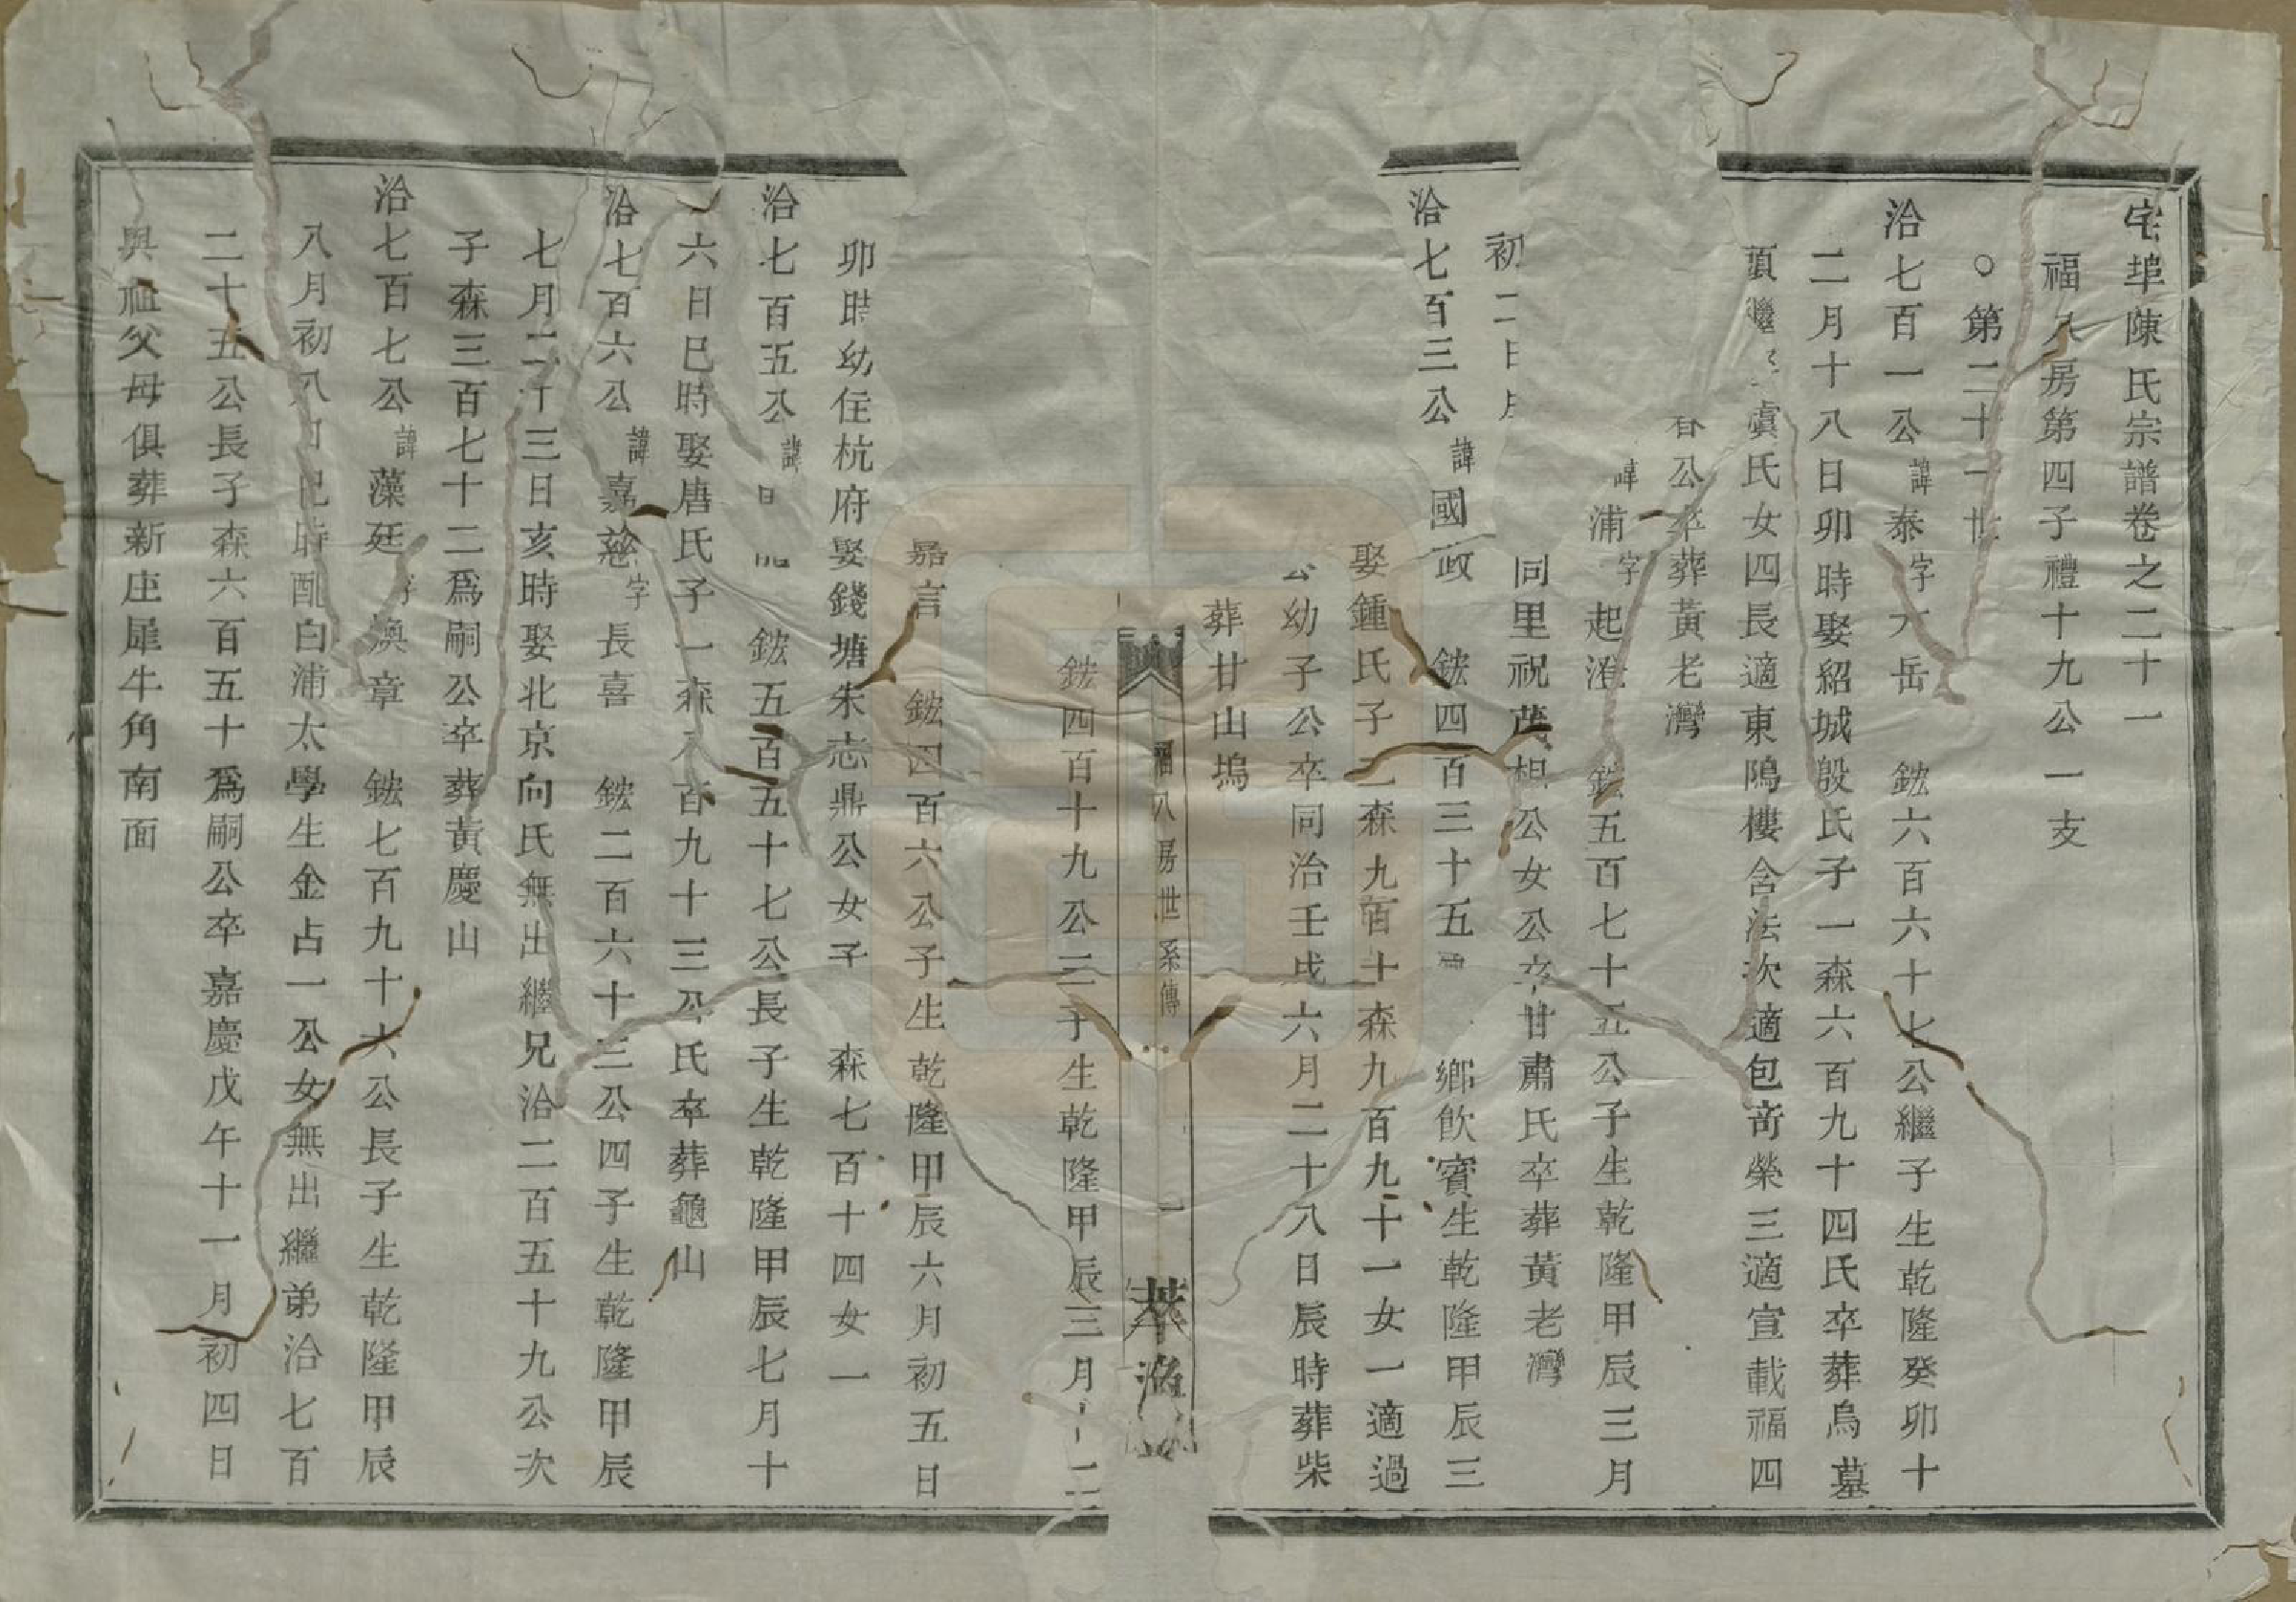 宅埠陳氏宗譜卷之二十一
福八房第四子禮十九公一支
○第二十一世
洽七百一公諱泰字 岳 鋐六百六十七公繼子生乾隆癸卯十
二月十八日卯時娶紹城殷氏子一森六百九十四氏卒葬烏墓
頭繼 虞氏女四長適東隝樓含法次適包奇榮三適宣載福四
公卒葬黃老灣
諱浦字起澄 鋐五百七十五公子生乾隆甲辰三月
初二日
同里祝茂相公女公卒甘肅氏卒葬黃老灣
洽七百三公諱國政 鋐四百三十五 鄉飲賓生乾隆甲辰三
娶鍾氏子二森九百十森九百九十一女一適過
公幼子公卒同治壬戌六月二十八日辰時葬柴
葬廿山塢
福八房世系傳 一 萃渙
鋐四百十九公三子生乾隆甲辰三月
嘉言 鋐四百六公子生乾隆甲辰六月初五日
卯時幼住杭府娶錢塘朱志鼎公女子 森七百十四女一
洽七百五公諱 鋐五百五十七公長子生乾隆甲辰七月十
六日巳時娶唐氏子一森 百九十三公氏卒葬龜山
洽七百六公諱嘉慈字長喜 鋐二百六十三公四子生乾隆甲辰
七月二十三日亥時娶北京向氏無出繼兄洽二百五十九公次
子森三百七十二爲嗣公卒葬黃慶山
洽七百七公諱藻廷字煥章 鋐七百九十六公長子生乾隆甲辰
八月初八日巳時配白浦太學生金占一公女無出繼弟洽七百
二十五公長子森六百五十爲嗣公卒嘉慶戊午十一月初四日
與祖父母俱葬新庄犀牛角南面